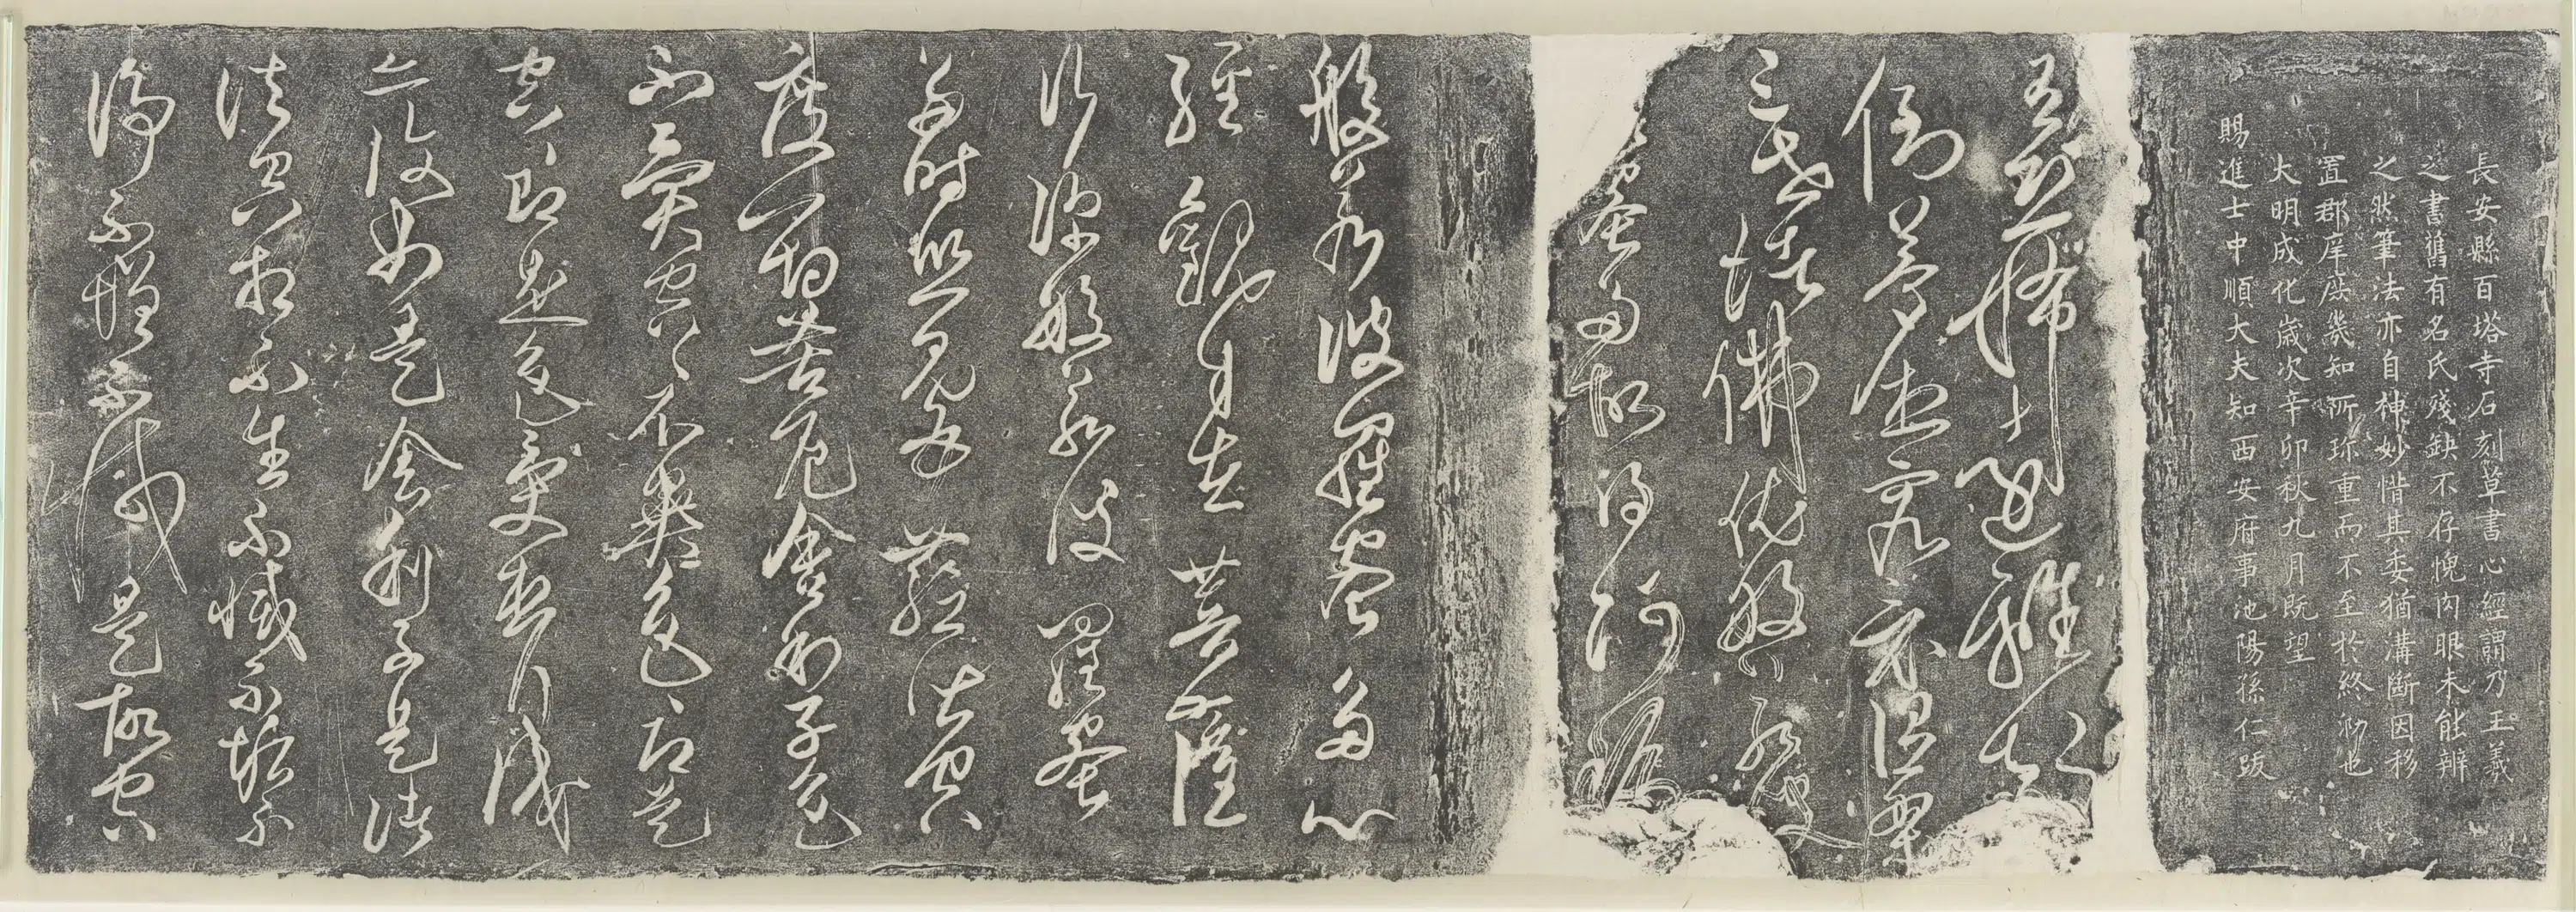 長安縣百塔寺石刻草書心經謂乃王羲
之書舊有名氏殘缺不存愧肉眼未能辨
之然筆法亦自神妙惜其委猶溝斷因移
置郡庠庶幾知所珎重而不至於終泐也
大明成化歲次辛卯秋九月既望
賜進士中順大夫知西安府事池陽孫仁跋
有恐怖遠離顛
倒夢想究竟涅槃
三世諸佛依般若波
蜜多故得阿耨
般若波羅蜜多心
經觀自在菩薩
行深般若波羅蜜
多時照見五蘊皆空
度一切苦厄舍利子色
不異空空不異色色即是
空空即是色受想行識
亦復如是舍利子是諸
法空相不生不滅不垢不
淨不增不減是故空中